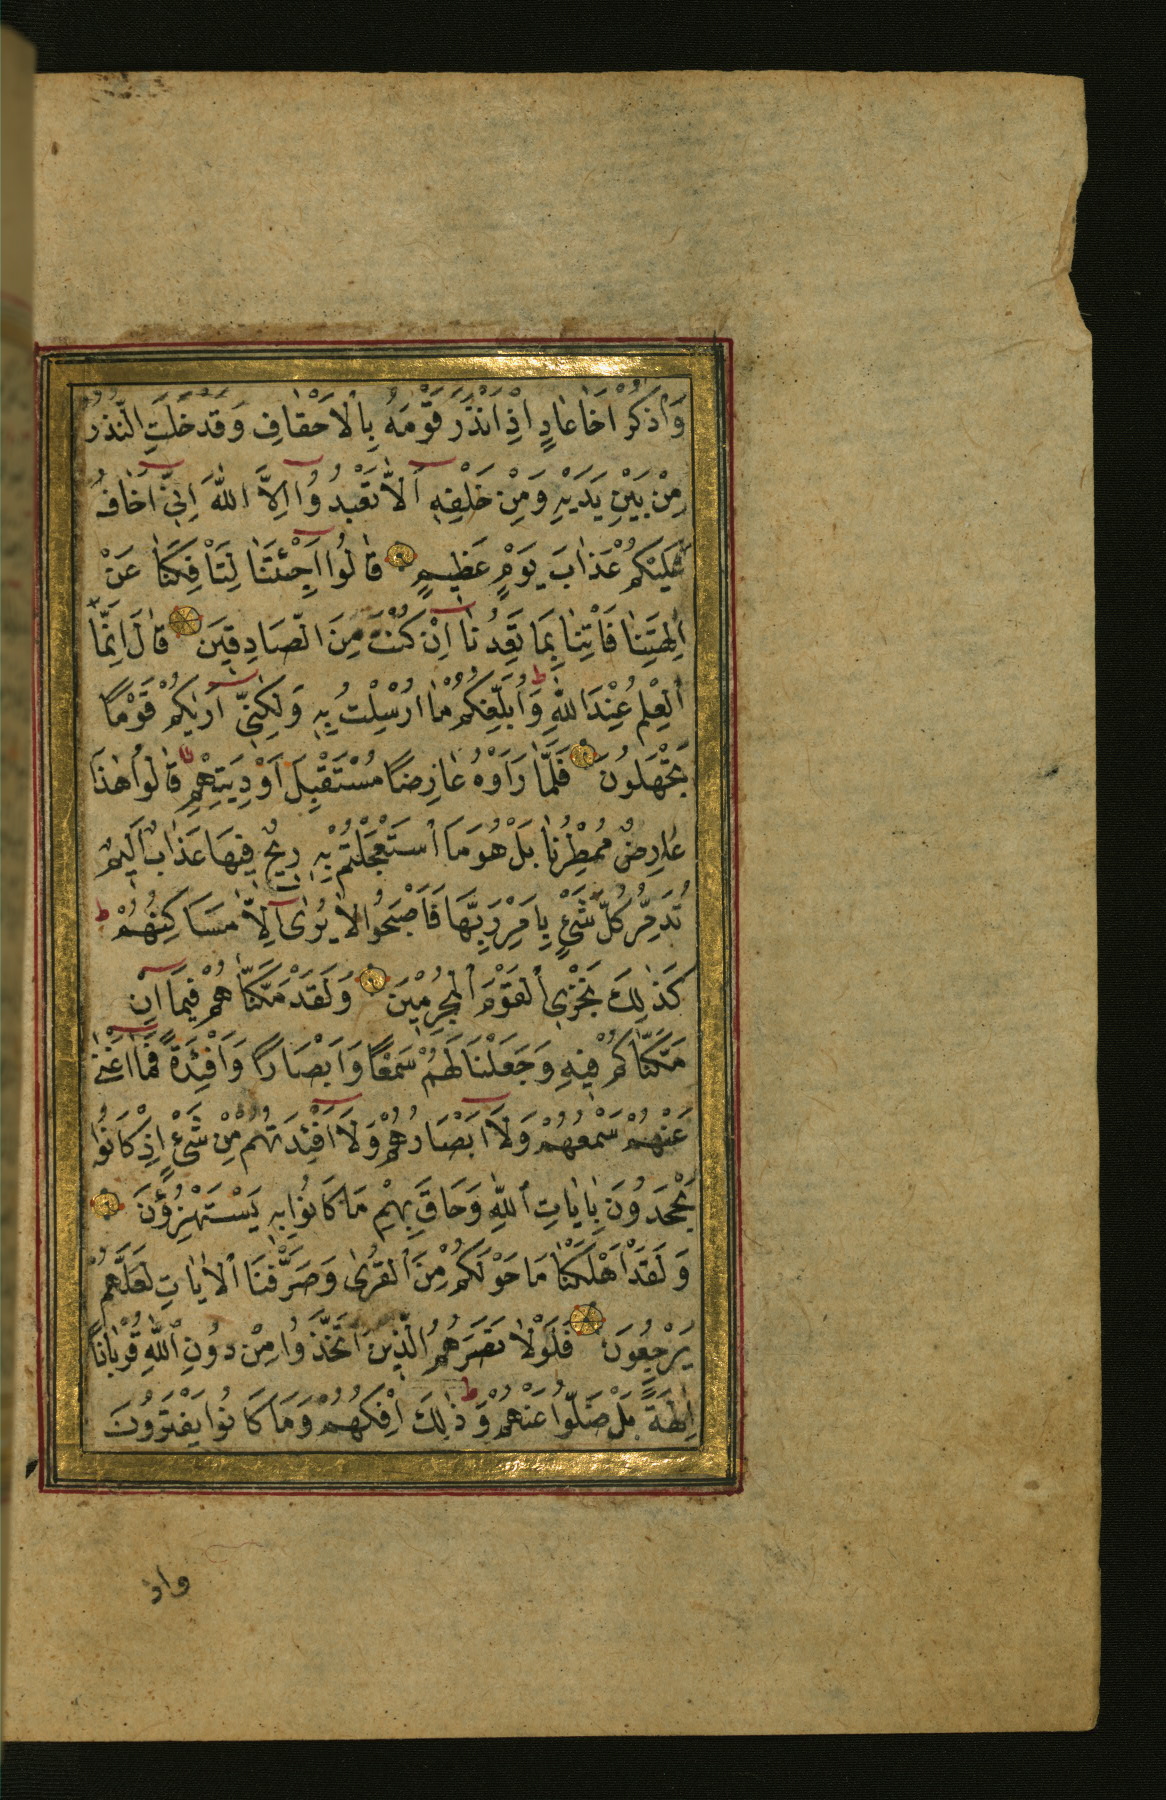 وَاذْكُرْ اَخَا عَادٍ اِذْ اَنْذَرَ قَوْمَهُ بِالْاَحْقَافِ وَقَدْ خَلَتِ النُّذُرُ
مِنْ بَيْنِ يَدَيْهِ وَمِنْ خَلْفِهِ اَلَّا تَعْبُدُوا اِلَّا اللّٰهَ اِنِّي اَخَافُ
عَلَيْكُمْ عَذَابَ يَوْمٍ عَظِيمٍ قَالُوا اَجِئْتَنَا لِتَأْفِكَنَا عَنْ
اٰلِهَتِنَا فَأْتِنَا بِمَا تَعِدُنَا اِنْ كُنْتَ مِنَ الصَّادِقِينَ قَالَ اِنَّمَا
الْعِلْمُ عِنْدَ اللّٰهِ وَاُبَلِّغُكُمْ مَا اُرْسِلْتُ بِهِ وَلٰكِنِّي اَرٰيكُمْ قَوْمًا
تَجْهَلُونَ فَلَمَّا رَاَوْهُ عَارِضًا مُسْتَقْبِلَ اَوْدِيَتِهِمْ قَالُوا هٰذَا
عَارِضٌ مُمْطِرُنَا بَلْ هُوَ مَا اسْتَعْجَلْتُمْ بِهِ رِيحٌ فِيهَا عَذَابٌ اَلِيمٌ
تُدَمِّرُ كُلَّ شَيْءٍ بِاَمْرِ رَبِّهَا فَاَصْبَحُوا لَا يُرٰى اِلَّا مَسَاكِنُهُمْ ط
كَذٰلِكَ نَجْزِي الْقَوْمَ الْمُجْرِمِينَ وَلَقَدْ مَكَّنَّاهُمْ فِيمَا اِنْ
مَكَّنَّاكُمْ فِيهِ وَجَعَلْنَا لَهُمْ سَمْعًا وَاَبْصَارًا وَاَفْئِدَةً فَمَا اَغْنٰى
عَنْهُمْ سَمْعُهُمْ وَلَا اَبْصَارُهُمْ وَلَا اَفْئِدَتُهُمْ مِنْ شَيْءٍ اِذْ كَانُوا
يَجْحَدُونَ بِاٰيَاتِ اللّٰهِ وَحَاقَ بِهِمْ مَا كَانُوا بِهِ يَسْتَهْزِؤُنَ
وَلَقَدْ اَهْلَكْنَا مَا حَوْلَكُمْ مِنَ الْقُرٰى وَصَرَّفْنَا الْاٰيَاتِ لَعَلَّهُمْ
يَرْجِعُونَ فَلَوْلَا نَصَرَهُمُ الَّذِينَ اتَّخَذُوا مِنْ دُونِ اللّٰهِ قُرْبَانًا
اٰلِهَةً بَلْ ضَلُّوا عَنْهُمْ ط وَذٰلِكَ اِفْكُهُمْ وَمَا كَانُوا يَفْتَرُونَ
واذ